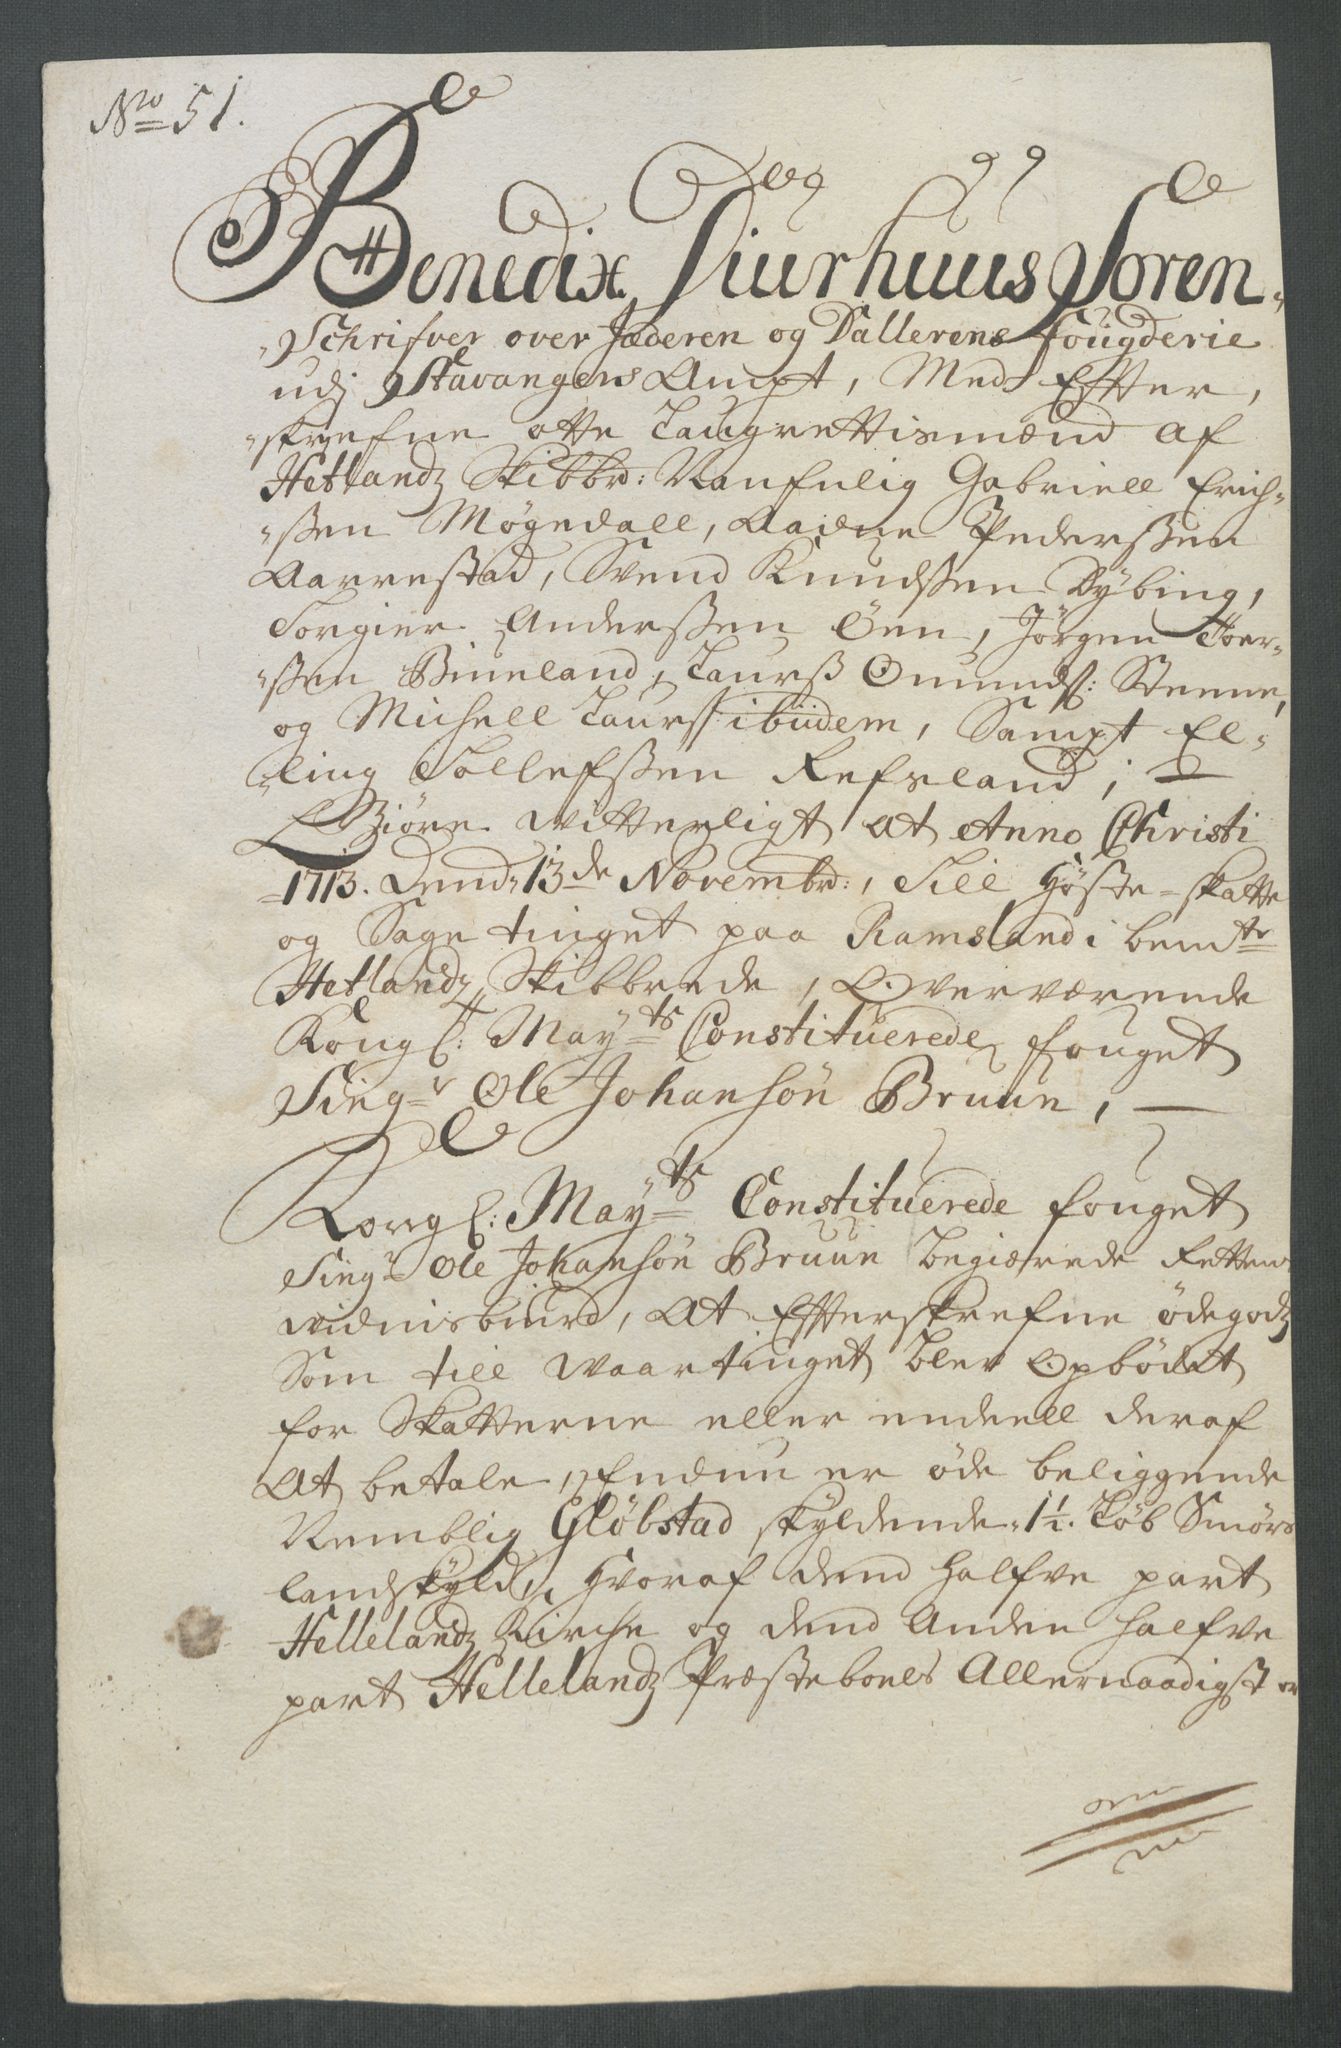 No 51.
Benedix Diurhuus Soren-
-Schrifver over Jæderen og Dallerens fougderie
udj Stavangers Ampt, Med Effter,
-skrefne otte Laugrettismænd af
Hetlandz Skibbrd: Nanfnlig Gabriell Erich-
-ssen Møgedall, Aadne Pederssen
Aarrestad, Svend Knudssen Dybing,
Torgier Anderssen Øen, Jørgen Toer-
-ssen Biueland, Laurss Omunds: Steene,
og Michell Laurss: ibiidem, Sampt El-
-ling Tollefssen Refsland;
Giøre witterligt at Anno Christi
-1713. Dend 13de Novembr:, Till Høste-skatte
og Sage tinget paa Ramsland i bemte
Hetlandz Skibbrede, Overværende
Kongl: Mayts Constituerede fouget
Singr Ole Johansøn Bruun,
Kongl: Mayts Constituerede fouget
Singr Ole Johansøn Bruun begiærede Rettens
widnisbiurd, At Effterskrefne ødegodz
Som till waartinget blev Opbødet
for Skatterne eller endeell deraf
At betale, Endnu er øde beliggende
Nemblig Gløbstad skyldende 1½. Løb Smørs
landskyld, hvoraf dend halfve part
Hellelandz Kirche og dend Anden halfve
part Hellelandz Præsteboels Allernaadigst er